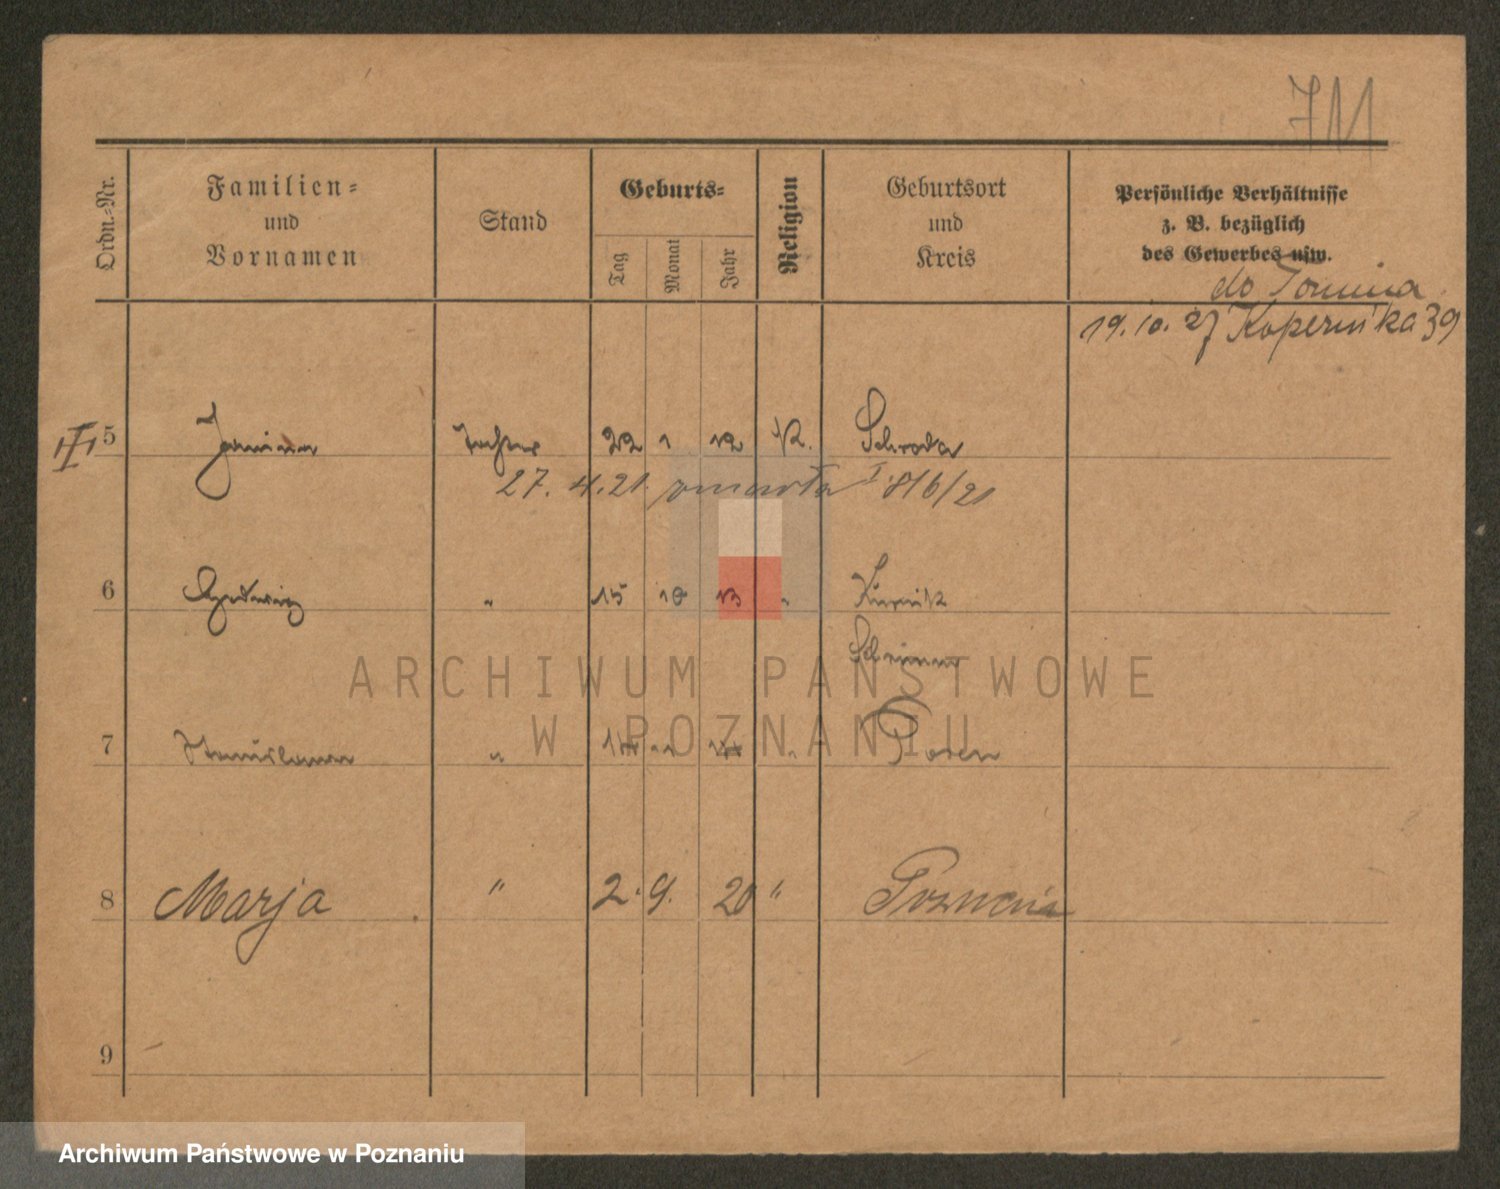 711
Ordn.-Nr.
Familien-
und
Vornamen
Stand
Geburts-
Tag
Monat
Jahr
Religion
Geburtsort
und
Kreis
Persönliche Verhältnisse
z. B. bezüglich
des Gewerbes usw.
do Tomina
19. 10. 27 Kopernika 39
5 Janina Tochter 22 1 12 K. Schroda
27. 4. 21 zmarła I 816/21
6 Hedwig " 15 10 13 " Kurnik
Schrimm
7 Stanislawa " 14 11 14 " Posen
8 Marja " 2. 9. 20 " Poznań
9
ARCHIWUM PAŃSTWOWE
W POZNANIU
Archiwum Państwowe w Poznaniu